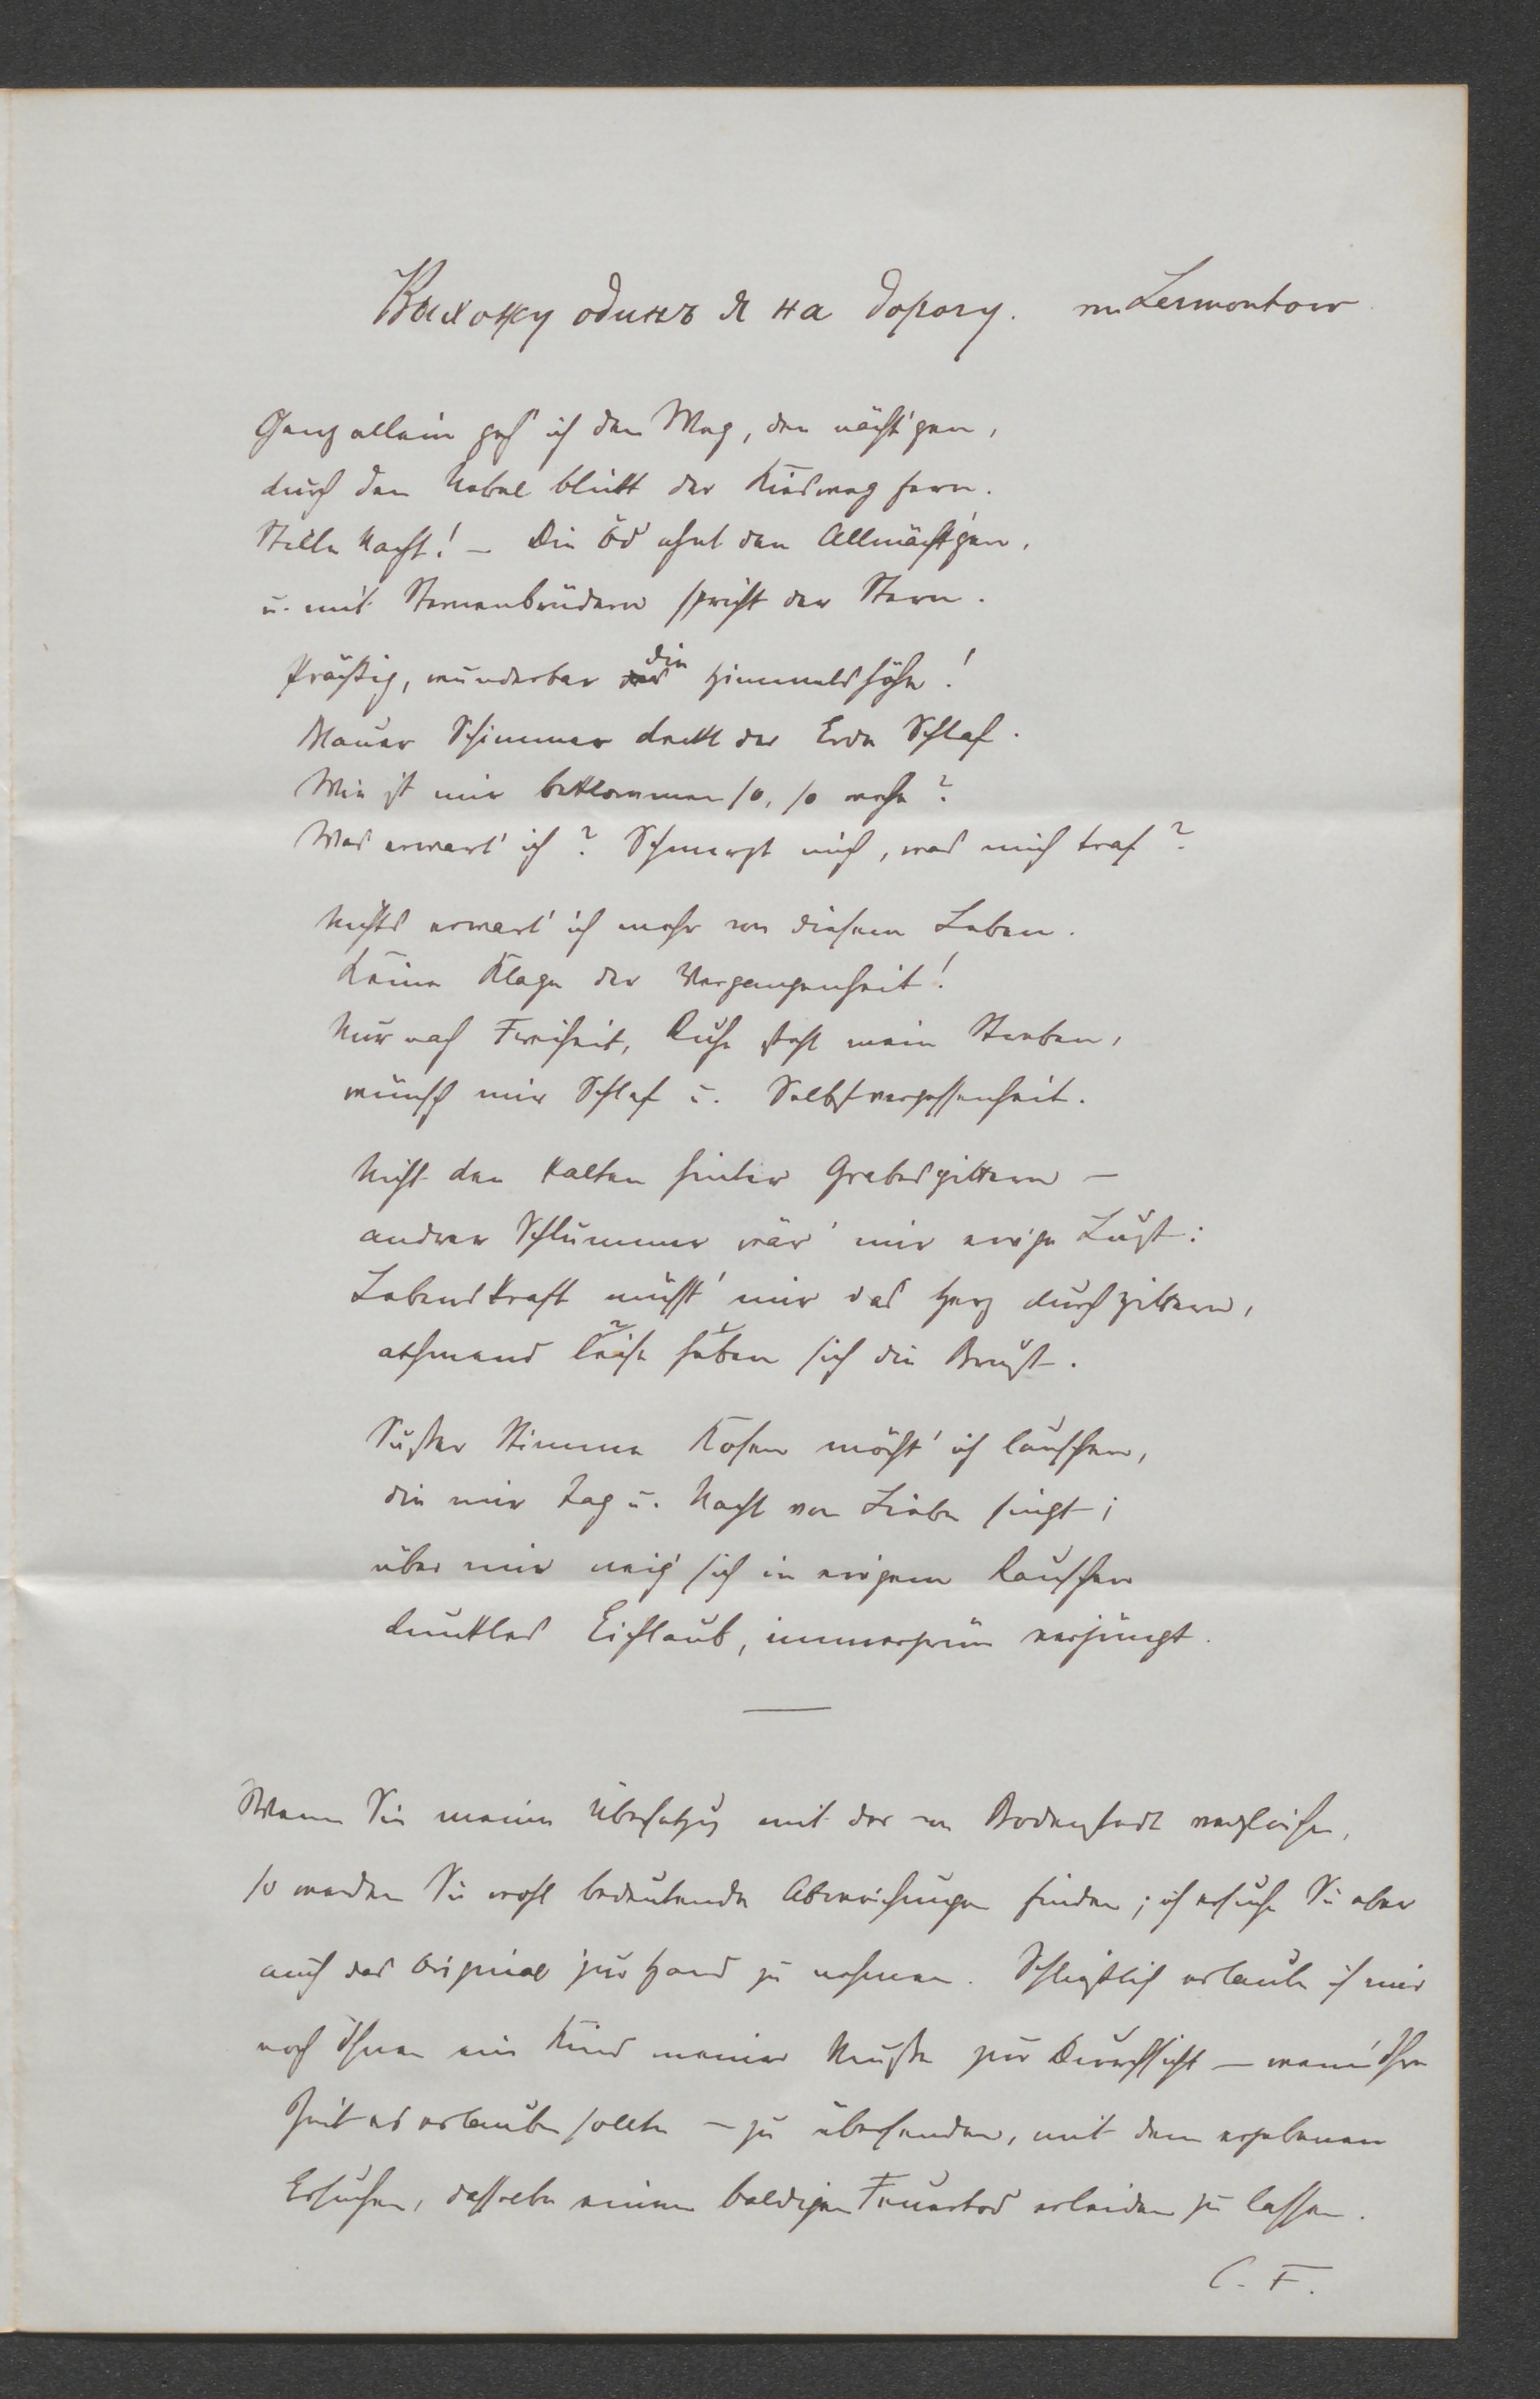 Выхожу одинъ я на дорогу. v. Lermontow
Ganz allein geh' ich den Weg, den nächt'gen,
durch den Nebel blickt der Kiesweg fern.
Stille Nacht! – Die Öd' ahnt den Allmächt'gen,
u. mit Sternenbrüdern spricht der Stern.
Prächtig, wunderbar die Himmelshöhe!
Blauer Schimmer deckt der Erde Schlaf.
Wie ist mir beklommen so, so wehe?
Was erwart' ich? Schmerzt mich, was mich traf?
Nichts erwart' ich mehr von diesem Leben.
Keine Klage der Vergangenheit!
Nur nach Freiheit, Ruhe steht mein Streben,
wünsch mir Schlaf u. Selbstvergessenheit.
Nicht den kalten hinter Grabesgittern –
andrer Schlummer wär' mir ew'ge Lust:
Lebenskraft müsst' mir das Herz durchzittern,
athmend leise heben sich die Brust.
Süßer Stimme Kosen möcht' ich lauschen,
die mir Tag u. Nacht von Liebe singt;
über mir neig' sich in ew'gem Rauschen
dunkles Eichlaub, immergrün verjüngt.
Wenn Sie meine Übersetzg mit der von Bodenstedt vergleichen,
so werden Sie wohl bedeutende Abweichungen finden; ich ersuche Sie aber
auch das Original zur Hand zu nehmen. Schließlich erlaube ich mir
noch Ihnen ein Kind meiner Muße zur Durchsicht – wenn Ihre
Zeit es erlauben sollte – zu übersenden, mit dem ergebenen
Ersuchen, dasselbe einen baldigen Feuertod erleiden zu lassen.
C. F.